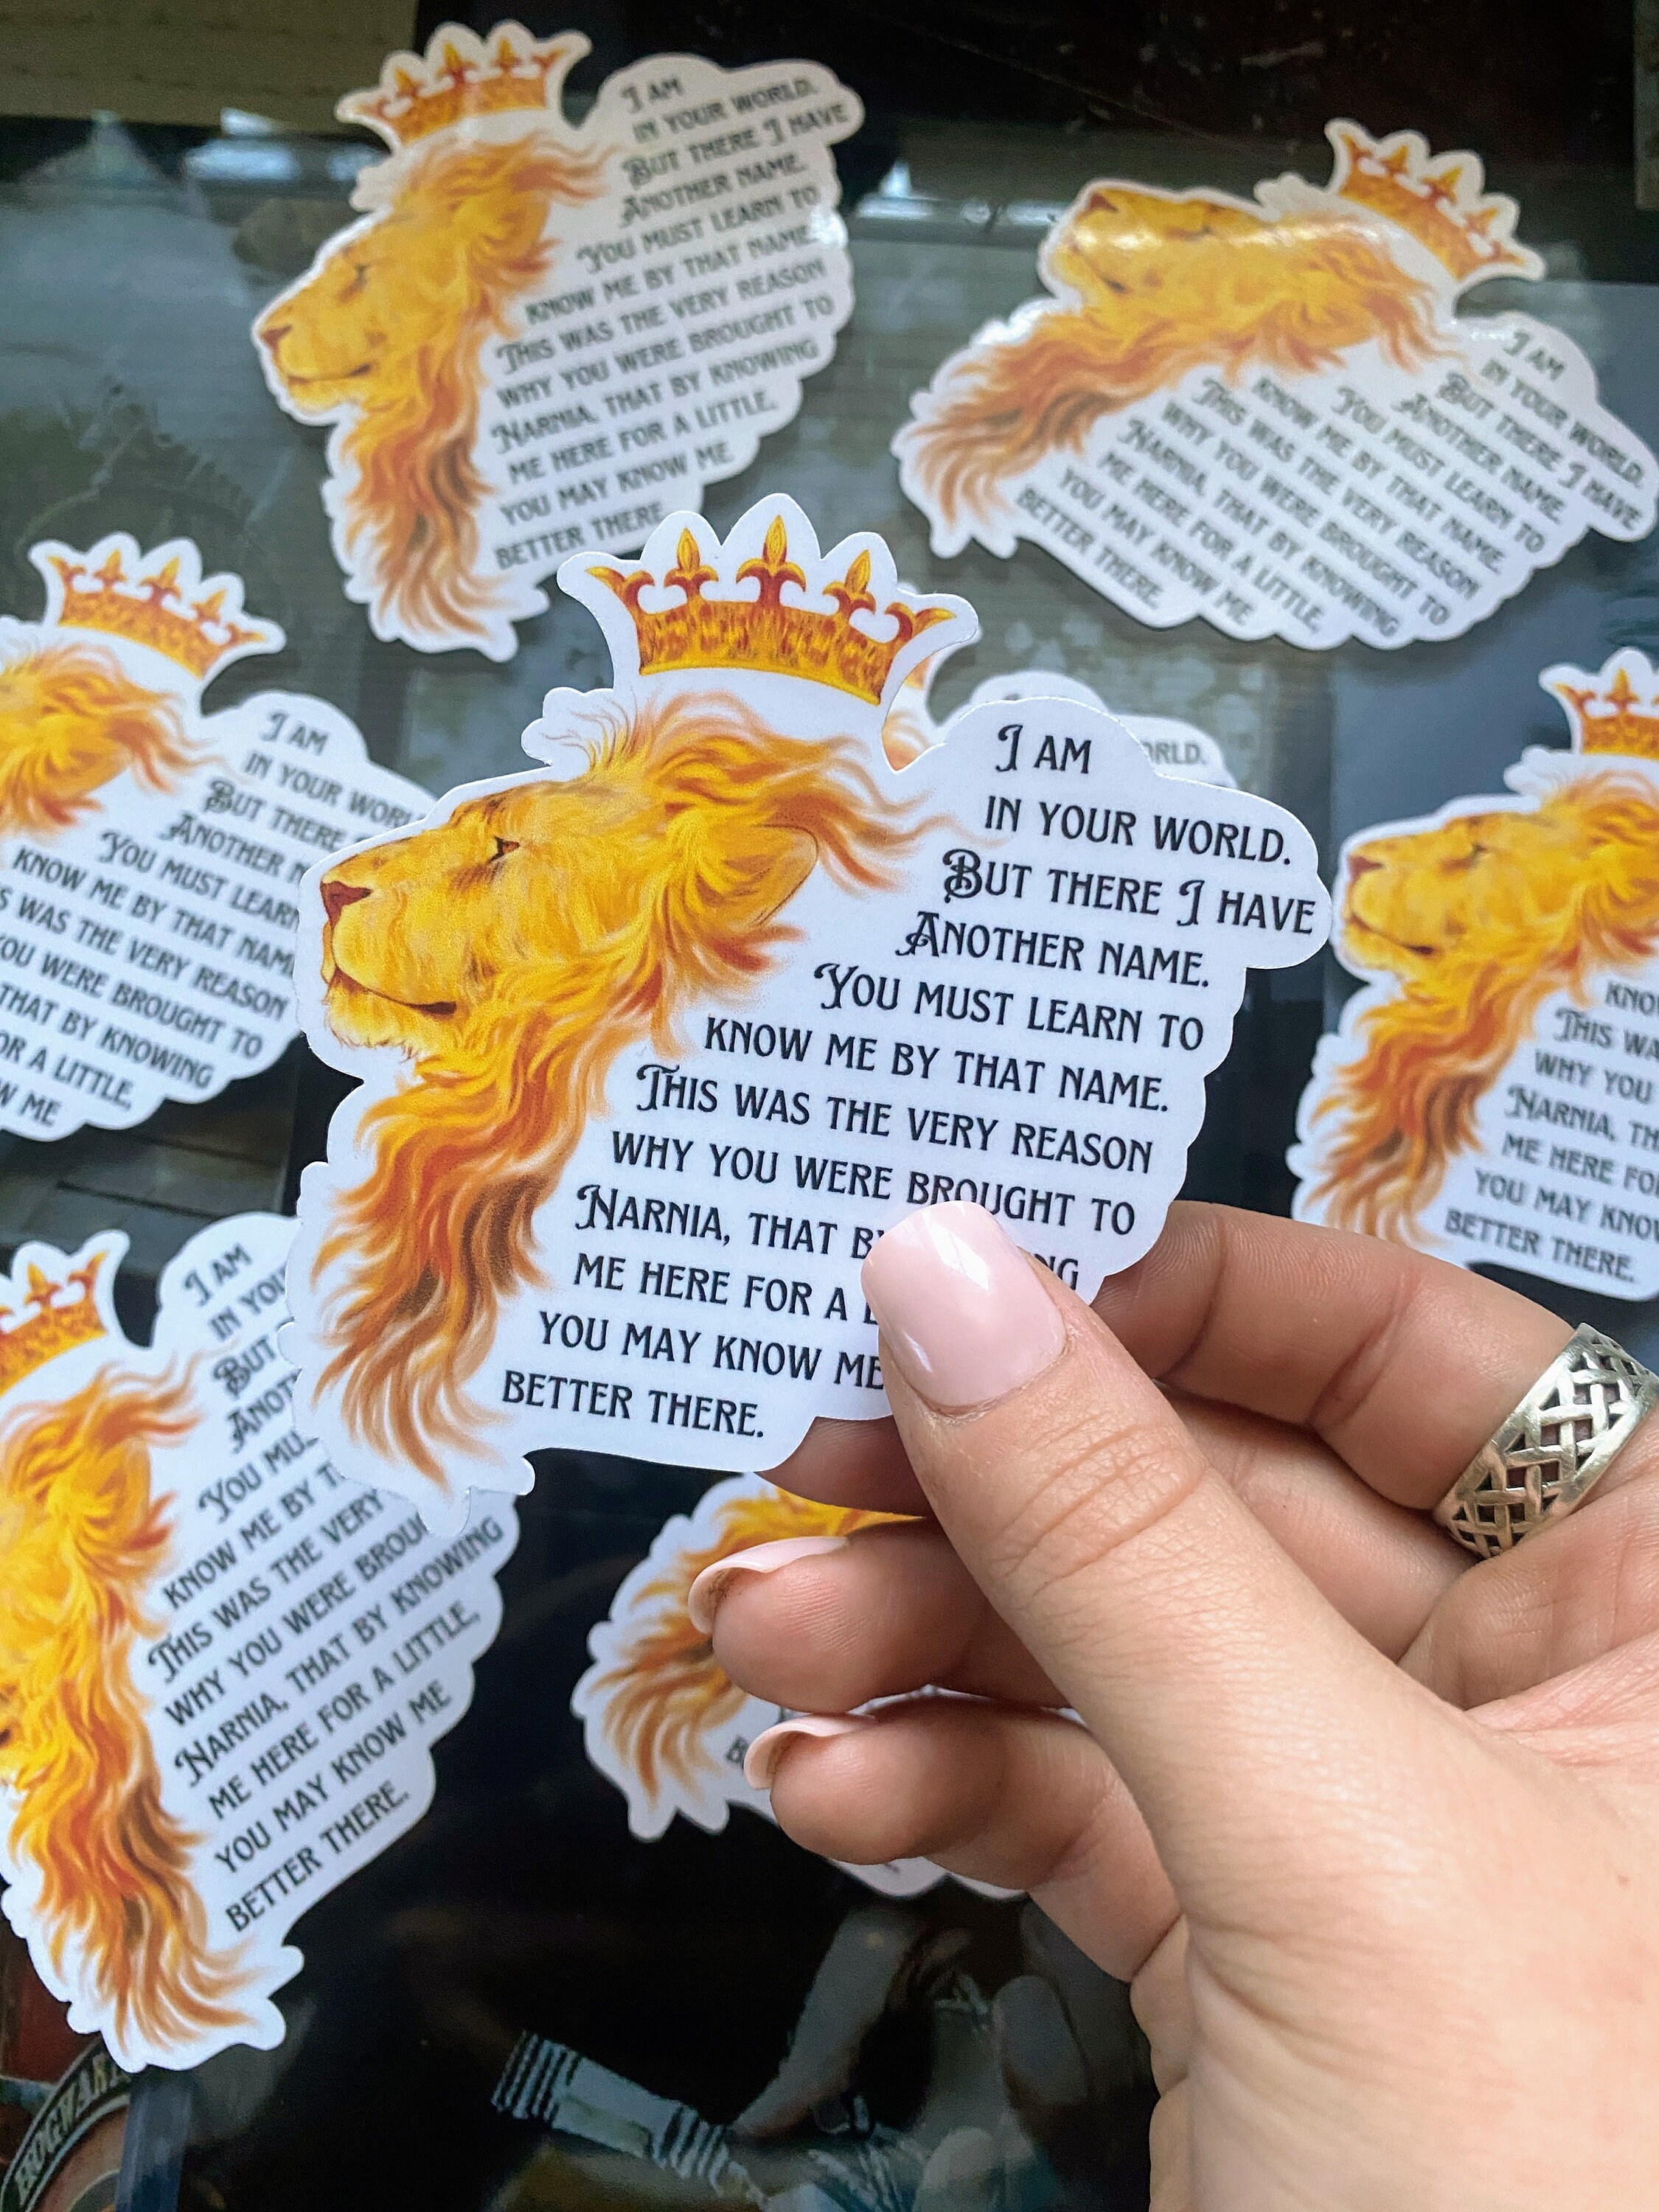 I AM
IN YOUR WORLD.
BUT THERE I HAVE
ANOTHER NAME.
YOU MUST LEARN TO
KNOW ME BY THAT NAME.
THIS WAS THE VERY REASON
WHY YOU WERE BROUGHT TO
NARNIA, THAT BY KNOWING
ME HERE FOR A LITTLE,
YOU MAY KNOW ME
BETTER THERE.
I AM
IN YOUR WORLD.
BUT THERE I HAVE
ANOTHER NAME.
YOU MUST LEARN TO
KNOW ME BY THAT NAME.
THIS WAS THE VERY REASON
WHY YOU WERE BROUGHT TO
NARNIA, THAT BY KNOWING
ME HERE FOR A LITTLE,
YOU MAY KNOW ME
BETTER THERE.
I AM
IN YOUR WORLD.
BUT THERE
ANOTHER
YOU MUST LEARN
KNOW ME BY THAT NAME
WAS THE VERY REASON
YOU WERE BROUGHT TO
THAT BY KNOWING
FOR A LITTLE,
ME
I AM
IN YOUR WORLD.
BUT THERE I HAVE
ANOTHER NAME.
YOU MUST LEARN TO
KNOW ME BY THAT NAME.
THIS WAS THE VERY REASON
WHY YOU WERE BROUGHT TO
NARNIA, THAT B
ME HERE FOR A
YOU MAY KNOW ME
BETTER THERE.
THIS WA
WHY YOU
NARNIA, TH
ME HERE FO
YOU MAY KNO
BETTER THERE.
I AM
IN YOU
BUT
ANOT
YOU MU
KNOW ME BY T
THIS WAS THE VERY
WHY YOU WERE BROU
NARNIA, THAT BY KNOWING
ME HERE FOR A LITTLE,
YOU MAY KNOW ME
BETTER THERE.